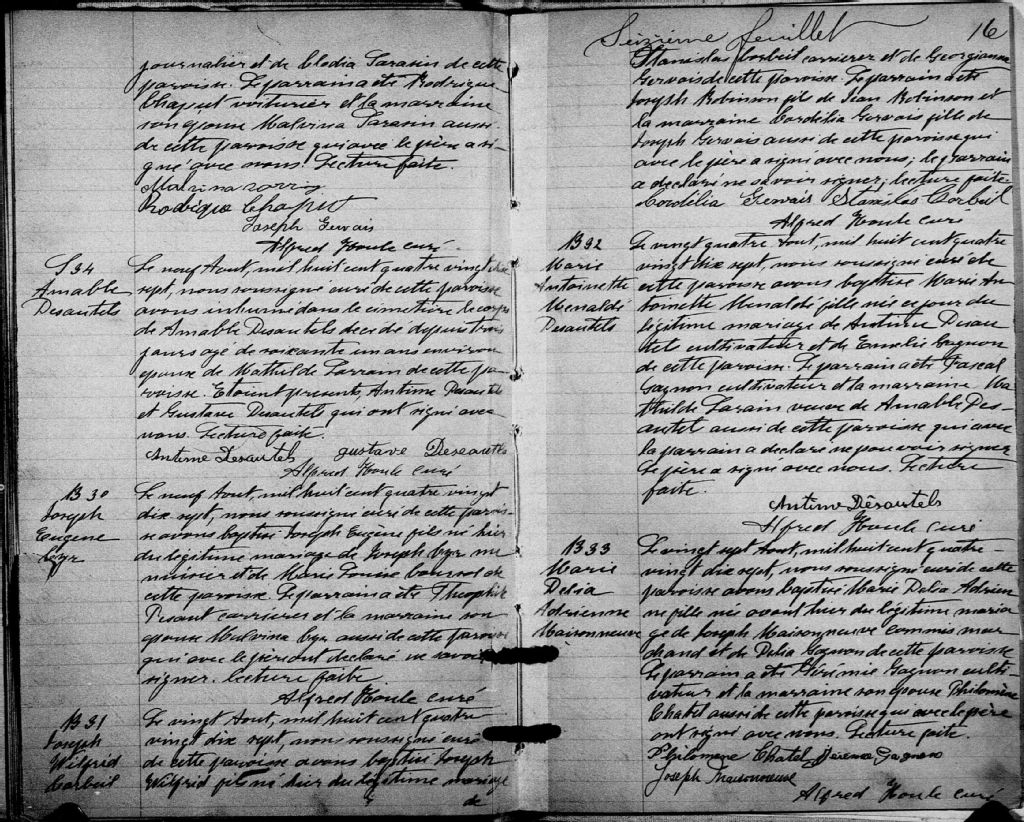 journalier et de Clodia Sarasin de cette
paroisse. Le parrain a été Rodrigue
Chaput voiturier et la marraine
son épouse Malvina Sarasin aussi
de cette paroisse qui avec le père a si-
gné avec nous. Lecture faite.
Malvina
Rodrigue Chaput
Joseph Gervais
Alfred Houle curé
S 34
Amable
Desautels
Le neuf Aout, mil huit cent quatre vingt dix
sept, nous soussigné curé de cette paroisse
avons inhumé dans le cimetière le corps
de Amable Desautels décédé depuis trois
jours agé de soixante un ans environ
époux de Mathilde de cette pa-
roisse. Etoient presents, Antime Desautels
et Gustave Desautels qui ont signé avec
nous. Lecture faite.
Antime Desautels gustave Deseautels
Alfred Houle curé
B 30
Joseph
Eugène
Cyr
Le neuf Aout, mil huit cent quatre vingt
dix sept, nous soussigné curé de cette parois-
se avons baptisé Joseph Eugène fils né hier
du légitime mariage de Joseph Cyr me
nuisier et de Marie Louise de
cette paroisse. Le parrain a été Théophile
Pesant carrier et la marraine son
épouse Malvina Cyr aussi de cette paroisse
qui avec le père ont déclaré ne savoir
signer. Lecture faite
Alfred Houle curé
B 31
Joseph
Wilfrid
Corbeil
Le vingt Aout, mil huit cent quatre
vingt dix sept, nous soussigné curé
de cette paroisse avons baptisé Joseph
Wilfrid fils né hier du légitime mariage
de
Seizième feuillet 16
Stanislas Corbeil carrier et de Georgianna
Gervais de cette paroisse. Le parrain a été
Joseph Robinson fils de Jean Robinson et
la marraine Cordélia Gervais fille de
Joseph Gervais aussi de cette paroisse qui
avec le père a signé avec nous; le parrain
a declaré ne savoir signer; lecture faite
Cordélia Gervais Stanislas Corbeil
Alfred Houle curé
B 32
Marie
Antoinette
Menaldé
Desautels
Le vingt quatre Aout, mil huit cent quatre
vingt dix sept, nous soussigné curé de
cette paroisse avons baptisé Marie An
toinette Menaldé fille née ce jour du
légitime mariage de Antime Desau
tel cultivateur et de Emelie Gagnon
de cette paroisse. Le parrain a été Pascal
Gagnon cultivateur et la marraine Ma
thilde veuve de Amable Des-
autel aussi de cette paroisse qui avec
le parrain a declaré ne pouvoir signer
Le père a signé avec nous. Lecture
faite.
Antime Désautels
Alfred Houle curé
B 33
Marie
Delia
Adrienne
Maisonneuve
Le vingt sept Aout, mil huit cent quatre-
vingt dix sept, nous soussigné curé de cette
paroisse avons baptisé Marie Delia Adrien
ne fille née avant hier du légitime maria
ge de Joseph Maisonneuve commis mar
chand et de Delia Gagnon de cette paroisse
Le parrain a été Jérémie Gagnon culti-
vateur et la marraine son épouse Philomène
Chatel aussi de cette paroisse qui avec le père
ont signé avec nous. Lecture faite.
Philomene Chatel Gagnon
Joseph Maisonneuve
Alfred Houle curé